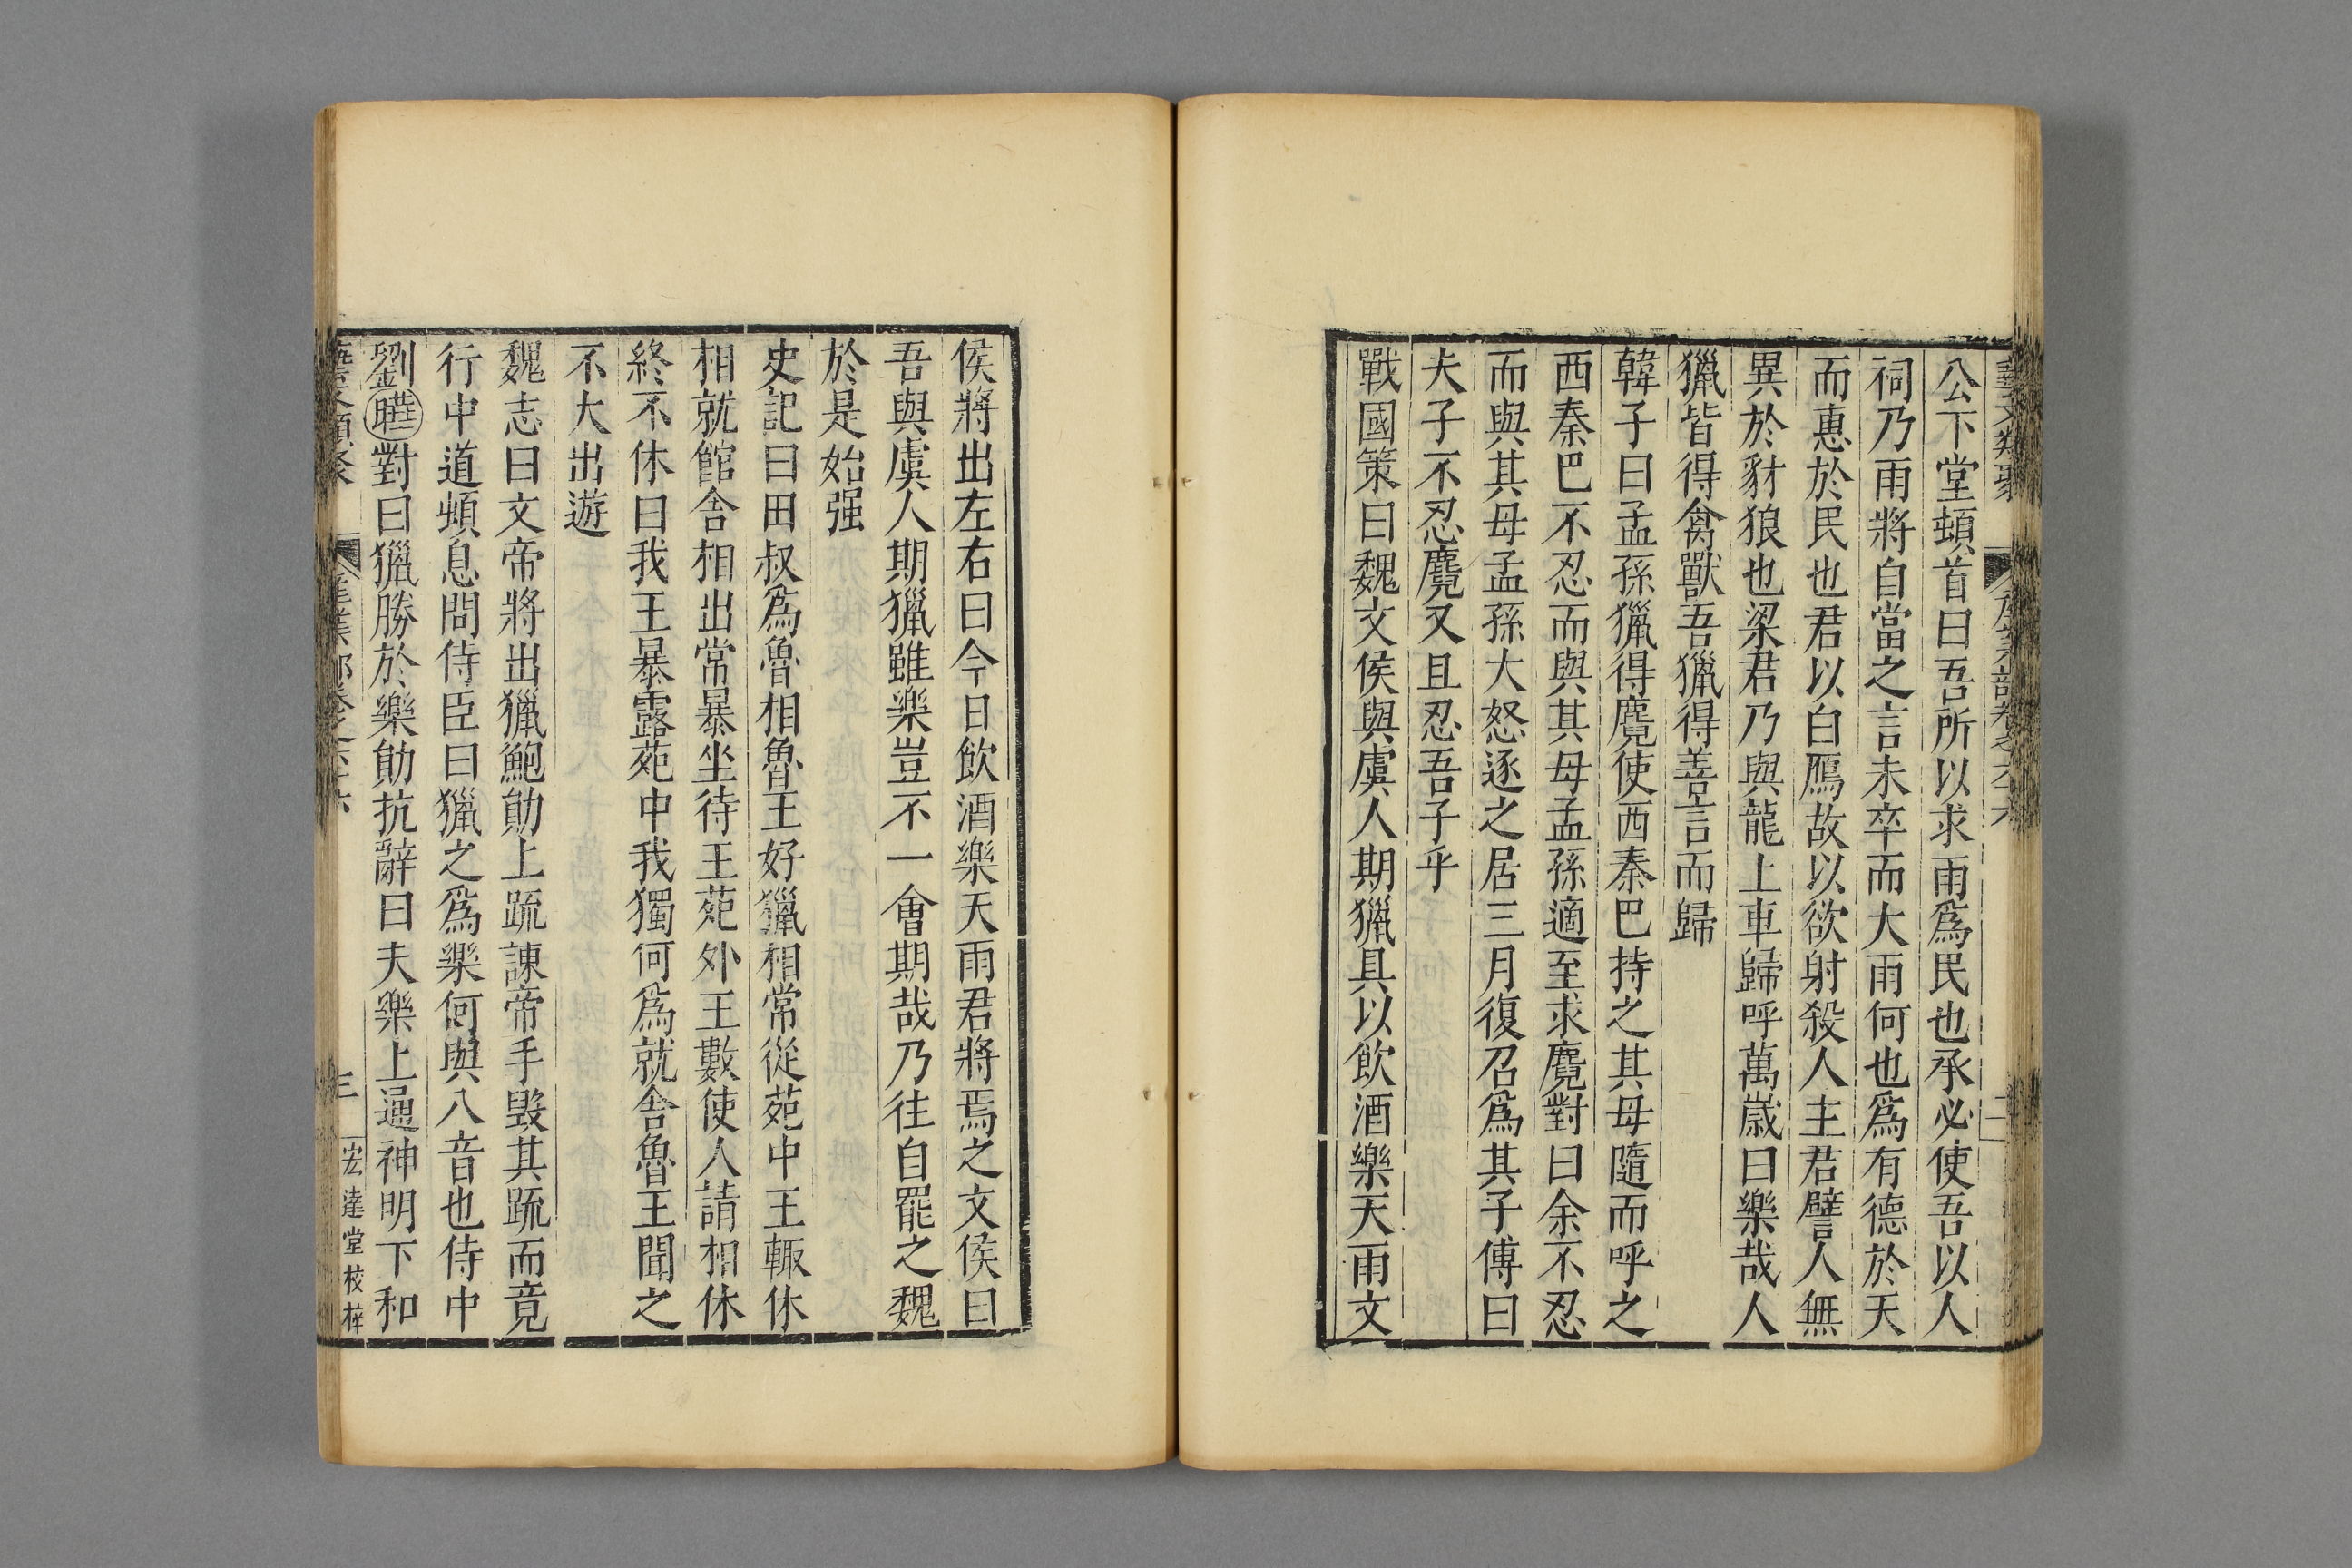 公下堂頓首曰吾所以求雨爲民也承必使吾以人
祠乃雨將自當之言未卒而大雨何也爲有德於天
而惠於民也君以白鴈故以欲射殺人主君譬人無
異於豺狼也梁君乃與龍上車歸呼萬歲曰樂哉人
獵皆得禽獸吾獵得善言而歸
韓子曰孟孫獵得麑使西秦巴持之其母隨而呼之
西秦巴不忍而與其母孟孫適至求麑對曰余不忍
而與其母孟孫大怒逐之居三月復召爲其子傅曰
夫子不忍麑又且忍吾子乎
戰國策曰魏文侯與虞人期獵具以飲酒樂天雨文
侯將出左右曰今日飲酒樂天雨君將焉之文侯曰
吾與虞人期獵雖樂豈不一會期哉乃往自罷之魏
於是始强
史記曰田叔爲魯相魯王好獵相常從苑中王輒休
相就館舍相出常暴坐待王苑外王數使人請相休
終不休曰我王暴露苑中我獨何爲就舍魯王聞之
不大出遊
魏志曰文帝將出獵鮑勛上疏諫帝手毀其疏而竟
行中道頓息問侍臣曰獵之爲樂何與八音也侍中
劉曄對曰獵勝於樂勛抗辭曰夫樂上通神明下和
藝文類聚 產業部卷之六十六 三 宏達堂校梓